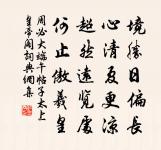 境勝日偏長
心清夏更涼
超然遠覽處
何止傲羲皇
周必大端午帖子太上
皇帝閣詞典網集